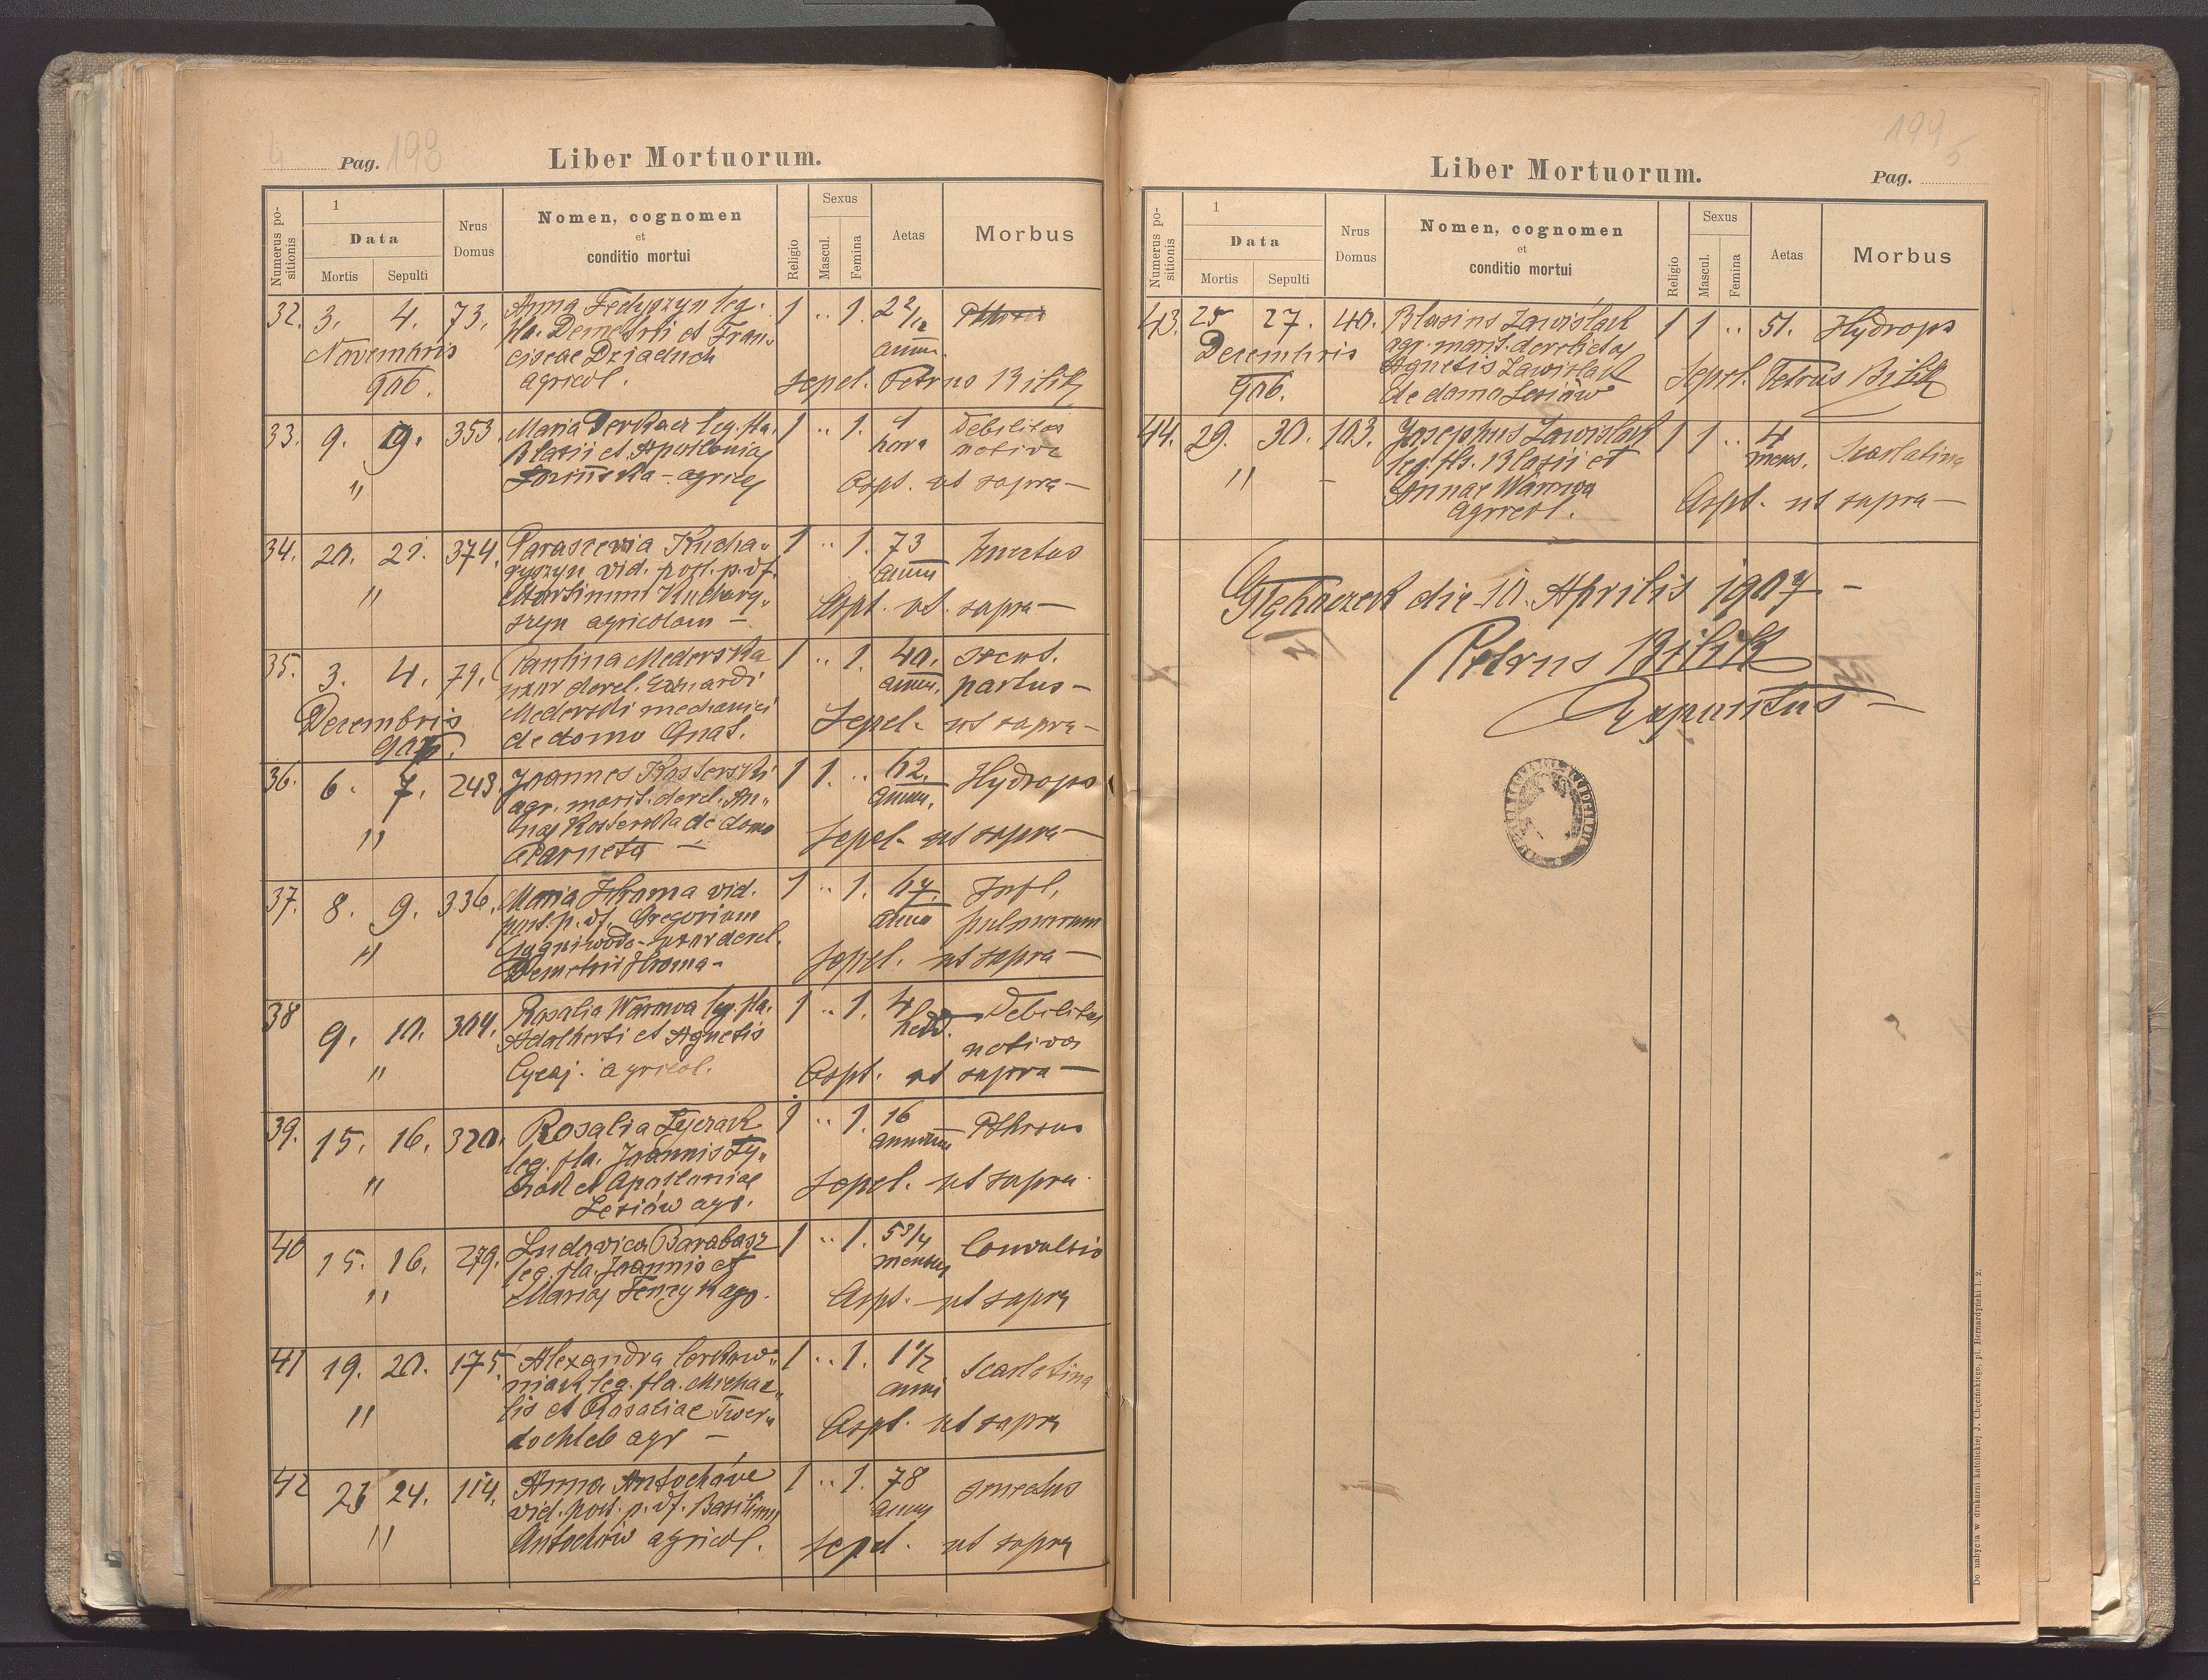 4 Pag. 198
Liber Mortuorum.
Numerus positionis
1
Data
Mortis Sepulti
Nrus Domus
Nomen, cognomen
et
conditio mortui
Religio
Sexus
Mascul. Femina
Aetas
Morbus
32. 3. 4. 73. Anna Fedyszyn leg. 1 " 1. 2 2/12
Novembris fla. Demetrii et Fran„ anni.
906. ciscae Dziaduch
agricol. Sepel. Petrus Bilik
33. 9. 9. 353. Maria Derkacz leg. fla. 1 " 1. 1 hora Debilitas
Blasii et Apolloniae nativa
" agricol. Aspt. ut supra —
34. 20. 21. 374. Paraszewia Kucha„ 1 " 1. 73 Senectus
ryszyn vid. post. p. df. annu
" Martinum Kuchary„
szyn agricolam — Aspt. ut supra —
35. 3. 4. 79. Paulina Mederska 1 " 1. 40. 
uxor derel. Eduardi annu. partus —
Decembris Mederski mechanici
906. de domo Gnat. Sepel. ut supra —
36. 6. 7. 243. Joannes Kosterski 1 1. " 62. Hydrops
agr. marit. derel. An„ annu.
" nae Kosterska de domo
Czarneta — Sepel. ut supra —
37. 8. 9. 336. Maria Hroma vid. 1 " 1. 67. Infl.
post. p. df. Gregorium annu pulmonum
" uxor derel.
Demetrii Hroma — Sepel. ut supra —
38 9. 10. 304. Rosalia Warmwa leg. fla. 1 " 1. 4 hebd. Debilitas
Adalberti et Agnetis nativa
" Cycaj. agricol. Aspt. ut supra —
39. 15. 16. 320. Rosalia Łyczak 1 " 1. 16 Pthisis
leg. fla. Joannis Ły„ annorum
" czak et Apolloniae
Lesiów agr. Sepel. ut supra
40 15. 16. 279. Ludovica Barabasz 1 " 1. 5 3/4 Convulsio
leg. fla. Joannis et mensu
" Mariae Tenzyk agr. Aspt. ut supra
41 19. 20. 175. Alexandra Cerkow„ 1 " 1. 1 1/2 Scarlatina
niak leg. fla. Michae„ anni
" lis et Rosaliae Twer„
dochleb agr — Aspt. ut supra
42 23 24. 114. Anna Antochów 1 " 1. 78 Senectus
vid. post. p. df. Basilium annu
" Antochów agricol. Sepel. ut supra
199
5
Liber Mortuorum.
Pag.
Numerus positionis
1
Data
Mortis Sepulti
Nrus Domus
Nomen, cognomen
et
conditio mortui
Religio
Sexus
Mascul. Femina
Aetas
Morbus
43. 25 27. 40. Blasius Zawiślak 1 1 " 51. Hydrops
Decembris agr. marit. derelictae
906. Agnetis Zawiślak
de domo Lesiów Sepel. Petrus Bilik
44. 29. 30. 103. Josephus Zawiślak 1 1 " 4 Scarlatina
leg. fls. Blasii et mens.
" Annae Warmwa
agricol. Aspt. ut supra —
Głęboczek die 10. Aprilis 1907 —
Petrus Bilik
Expositus —
Do nabycia w drukarni katolickiej J. Chęcińskiego, pl. Bernardyński l. 2.